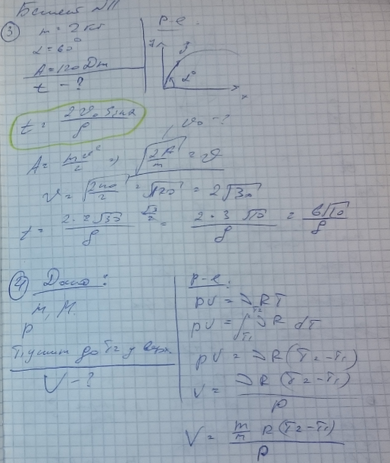 Билет №11
③ m = 2 кг
α = 60°
A = 120 Дж
t - ?
Р-е
y
x
α
t = 2v₀ sinα / g
v₀ - ?
A = mv²/2 => √(2A/m) = v
v = √(2·120/2) = √120 = 2√30
t = 2·2√30 / g · √3/2 = 2·3√10 / g = 6√10 / g
④ Дано:
m, M.
P
T₁ до T₂
V - ?
Р-е:
pV = νRT
pV = ∫T₁T₂ νR dT
pV = νR(T₂-T₁)
V = νR(T₂-T₁) / p
V = m/M R(T₂-T₁) / p